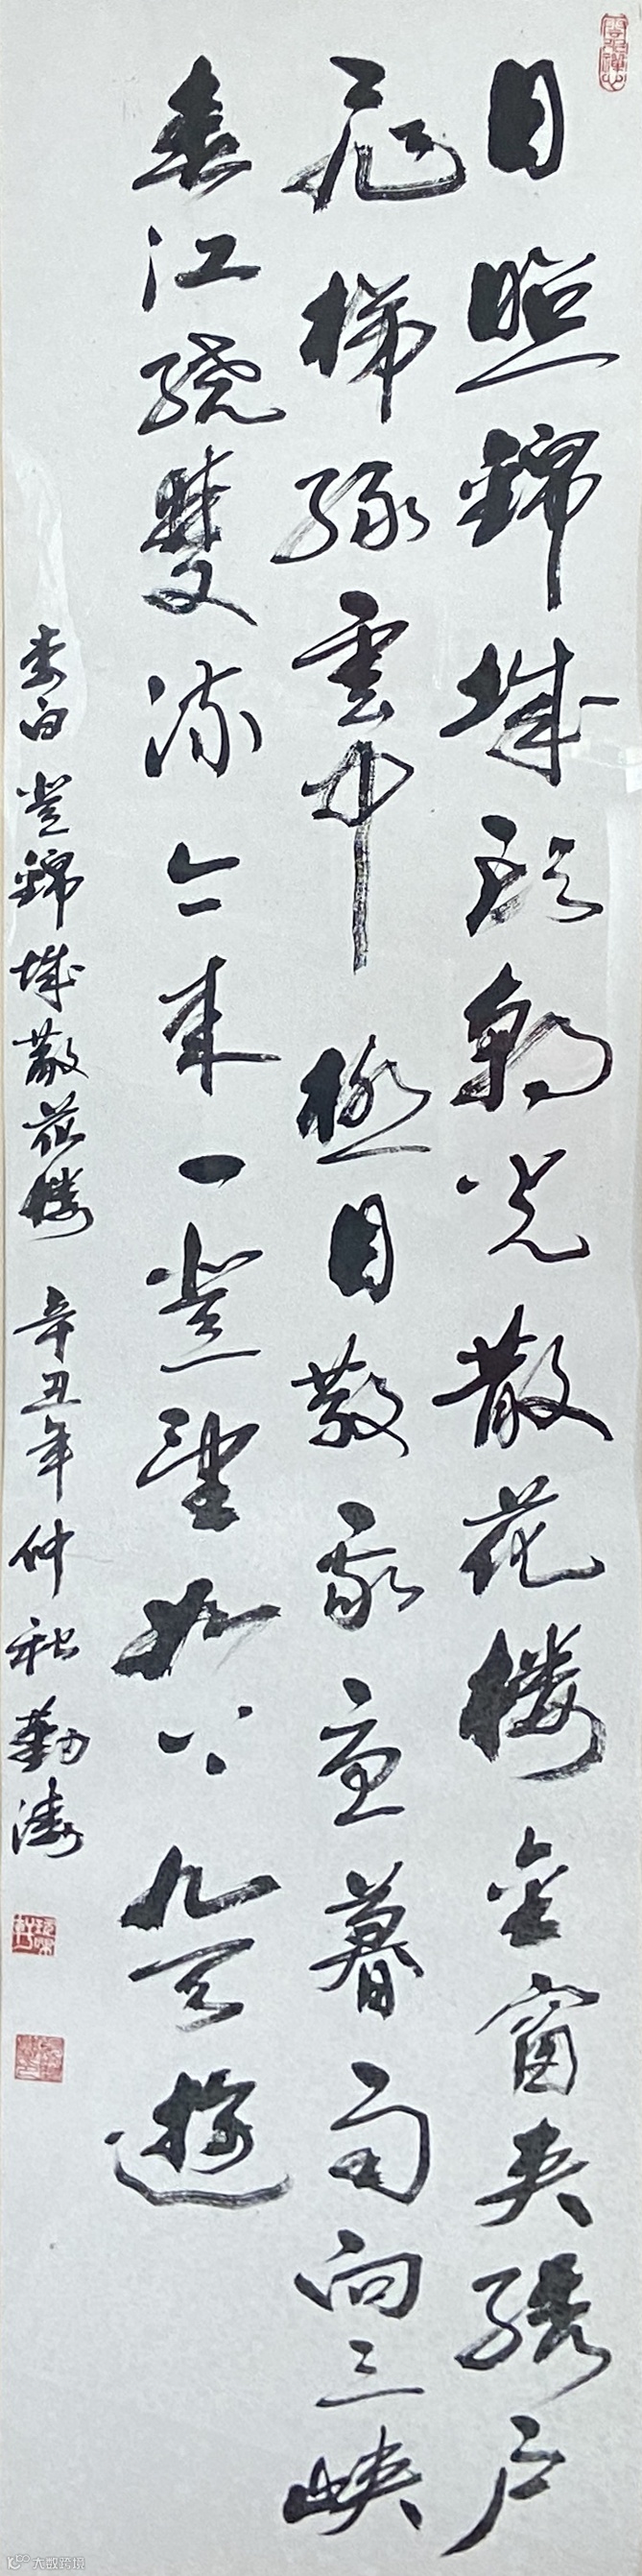 日照錦城頭朝光散花樓金窗夾繡户
飛梯緑雲中極目散我憂暮雨向三峡
春江繞雙流今来一登望如上九天遊
李白登錦城散花樓 辛丑年仲秋勤濤
大数跨境